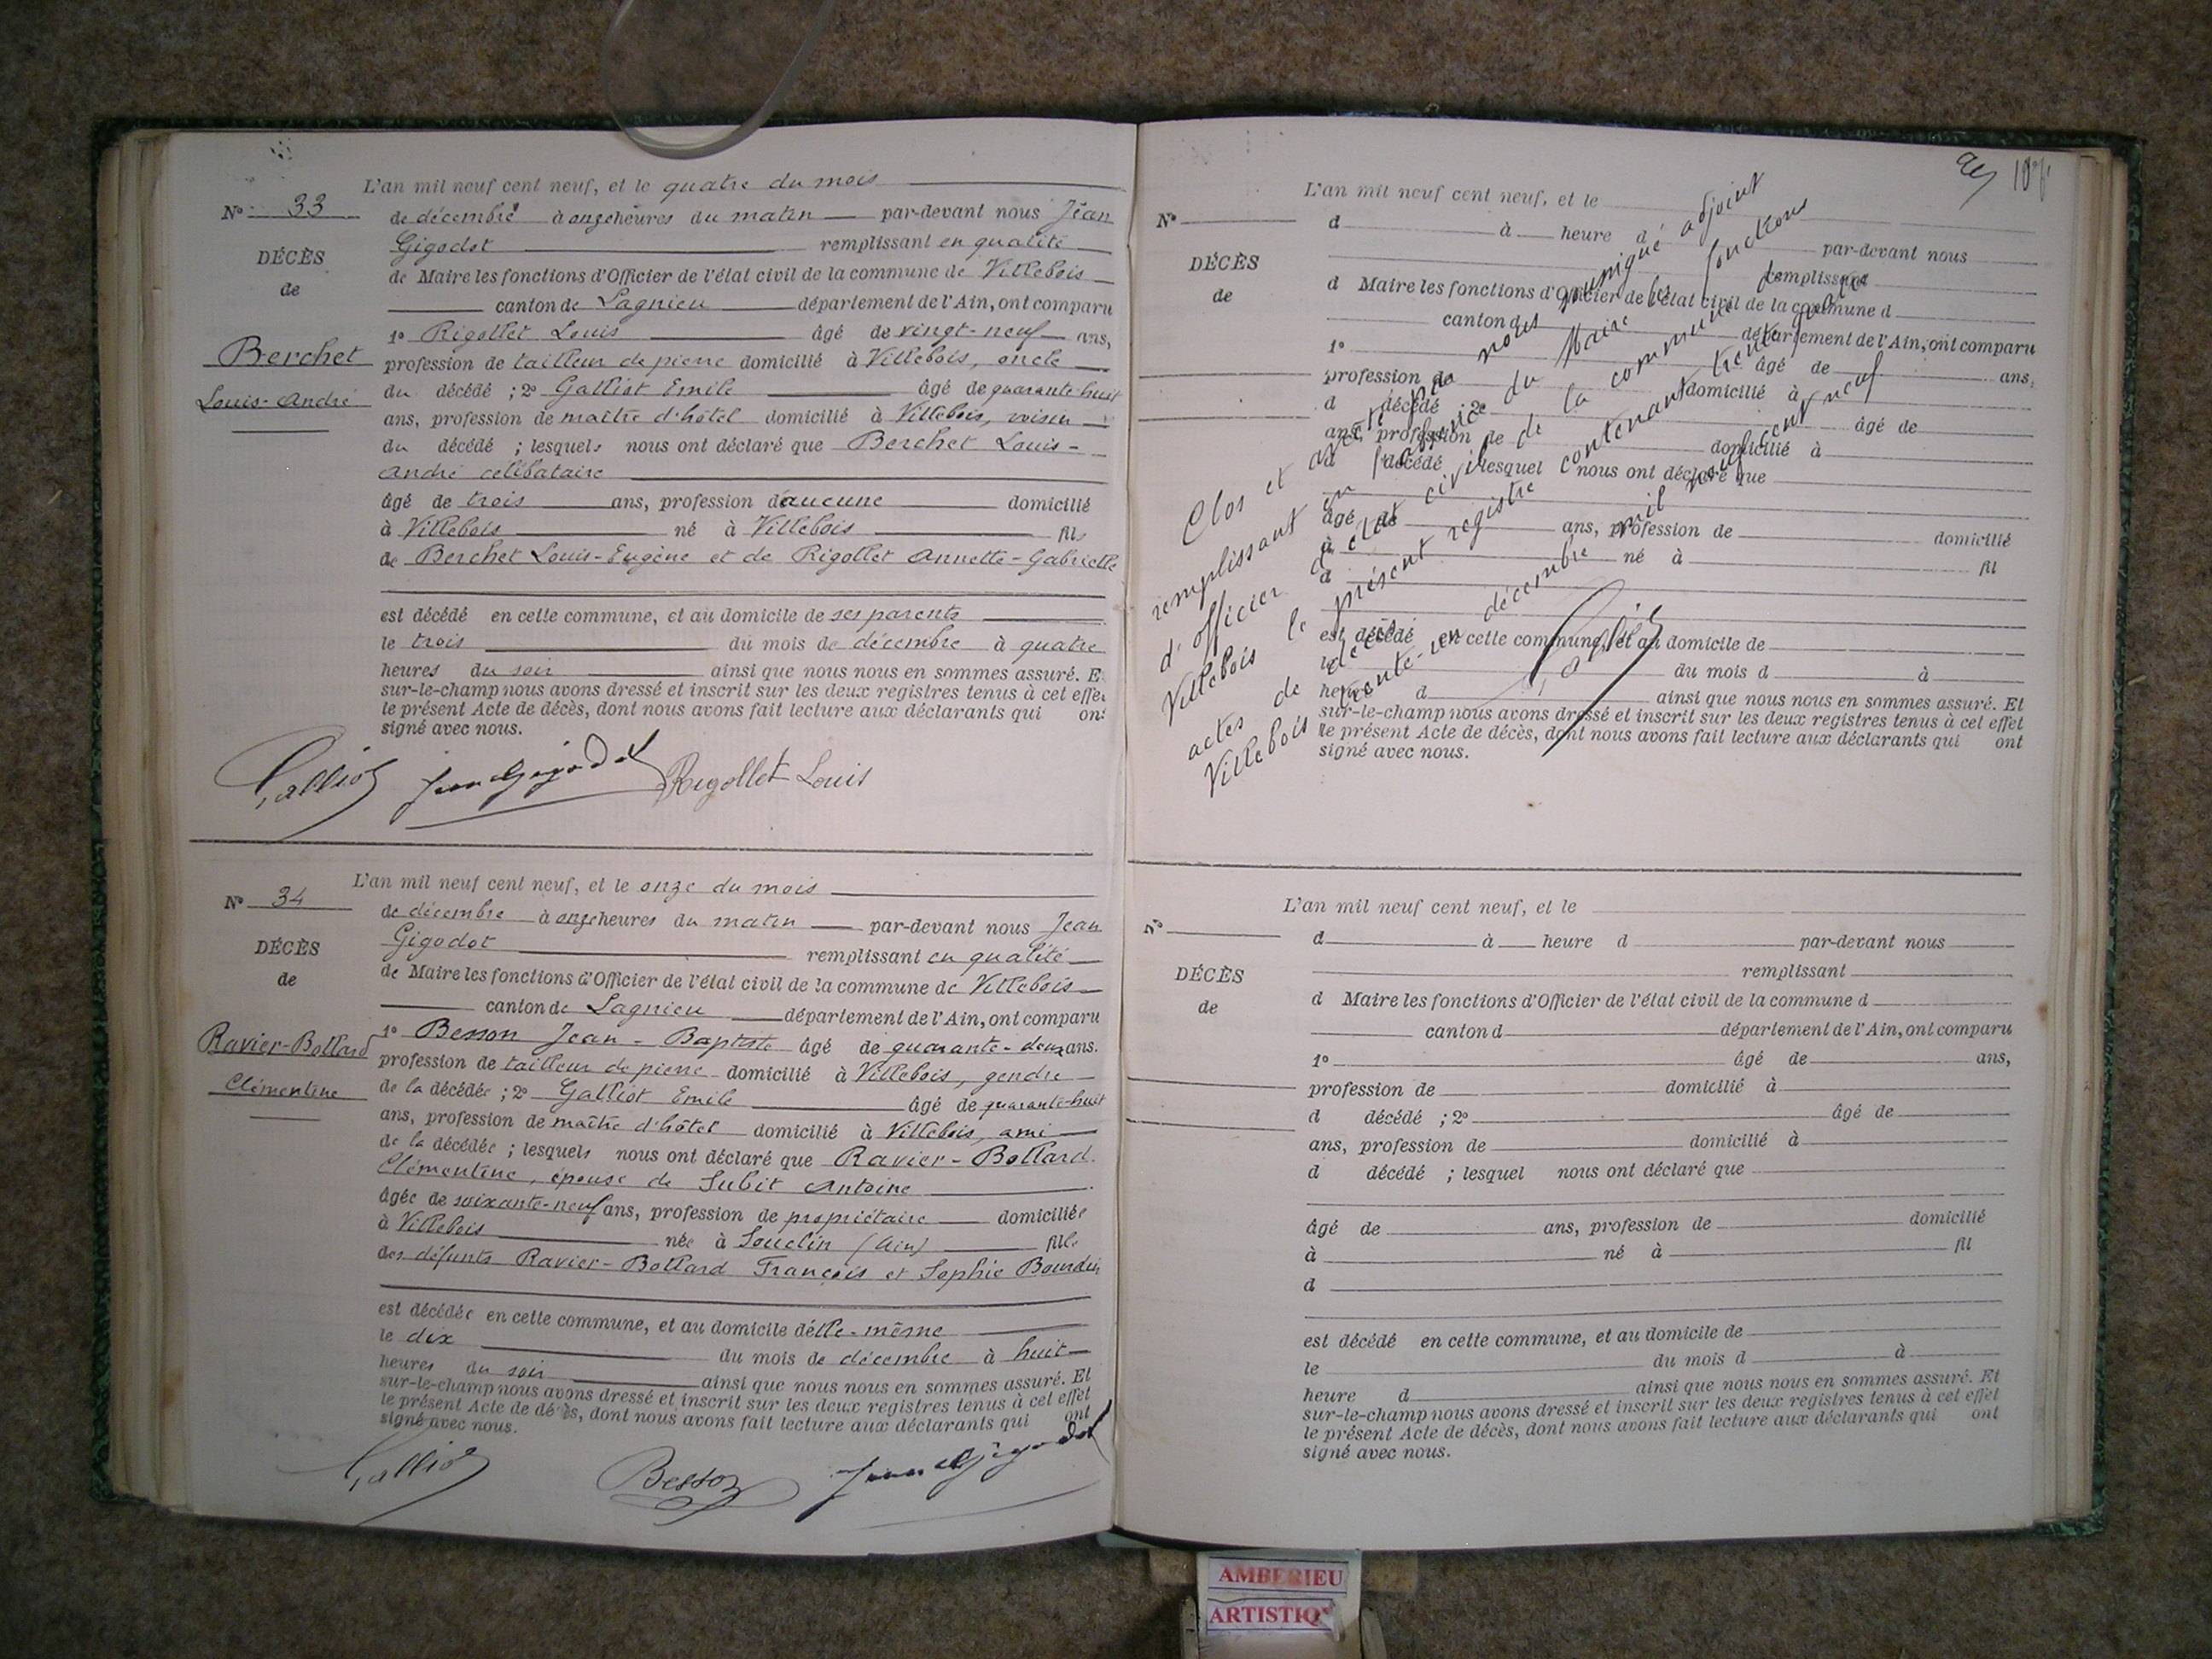 L'an mil neuf cent neuf, et le quatre du mois
N° 33
de décembre à onze heures du matin par-devant nous Jean
Gigodot remplissant en qualité
DÉCÈS
de
de Maire les fonctions d'Officier de l'état civil de la commune de Villebois
canton de Lagnieu département de l'Ain, ont comparu
1° Rigollet Louis âgé de vingt-neuf ans,
Berchet
Louis-André
profession de tailleur de pierre domicilié à Villebois, oncle
du décédé ; 2° Galliot Emile âgé de quarante-huit
ans, profession de maître d'hôtel domicilié à Villebois, voisin
du décédé ; lesquels nous ont déclaré que Berchet Louis-
André célibataire
âgé de trois ans, profession d'aucune domicilié
à Villebois né à Villebois fils
de Berchet Louis-Eugène et de Rigollet Annette-Gabrielle
est décédé en cette commune, et au domicile de ses parents
le trois du mois de décembre à quatre
heures du soir ainsi que nous nous en sommes assuré. E
sur-le-champ nous avons dressé et inscrit sur les deux registres tenus à cet effet
le présent Acte de décès, dont nous avons fait lecture aux déclarants qui ont
signé avec nous.
Galliot Jean Gigodot Rigollet Louis
L'an mil neuf cent neuf, et le onze du mois
N° 34
de décembre à onze heures du matin par-devant nous Jean
Gigodot remplissant en qualité
DÉCÈS
de
de Maire les fonctions d'Officier de l'état civil de la commune de Villebois
canton de Lagnieu département de l'Ain, ont comparu
1° Besson Jean-Baptiste âgé de quarante-deux ans.
Ravier-Bollard
Clémentine
profession de tailleur de pierre domicilié à Villebois, gendre
de la décédée ; 2° Galliot Emile âgé de quarante-huit
ans, profession de maître d'hôtel domicilié à Villebois, ami
de la décédée ; lesquels nous ont déclaré que Ravier-Bollard
Clémentine, épouse de Subit Antoine
âgée de soixante-neuf ans, profession de propriétaire domiciliée
à Villebois née à Souclin (Ain) fille
des défunts Ravier-Bollard François et Sophie Bourdin
est décédée en cette commune, et au domicile d'elle-même
le dix du mois de décembre à huit
heures du soir ainsi que nous nous en sommes assuré. Et
sur-le-champ nous avons dressé et inscrit sur les deux registres tenus à cet effet
le présent Acte de décès, dont nous avons fait lecture aux déclarants qui ont
signé avec nous.
Galliot Besson Jean Gigodot
L'an mil neuf cent neuf, et le
N°
d à heure d par-devant nous
remplissant
DÉCÈS
de
d Maire les fonctions d'Officier de l'état civil de la commune d
canton d département de l'Ain, ont comparu
1° âgé de ans,
profession de domicilié à
d décédé ; 2° âgé de
ans, profession de domicilié à
d décédé ; lesquel nous ont déclaré que
âgé de ans, profession de domicilié
à né à fil
d
est décédé en cette commune, et au domicile de
le du mois d à
heure d ainsi que nous nous en sommes assuré. Et
sur-le-champ nous avons dressé et inscrit sur les deux registres tenus à cet effet
le présent Acte de décès, dont nous avons fait lecture aux déclarants qui ont
signé avec nous.
Clos et arrêté par nous unique adjoint
remplissant en l'absence du Maire les fonctions
d'officier d'état civil de la commune de
Villebois le présent registre contenant trente quatre
actes de décès.
Villebois trente-un décembre mil neuf cent neuf
L'an mil neuf cent neuf, et le
N°
d à heure d par-devant nous
remplissant
DÉCÈS
de
d Maire les fonctions d'Officier de l'état civil de la commune d
canton d département de l'Ain, ont comparu
1° âgé de ans,
profession de domicilié à
d décédé ; 2° âgé de
ans, profession de domicilié à
d décédé ; lesquel nous ont déclaré que
âgé de ans, profession de domicilié
à né à fil
d
est décédé en cette commune, et au domicile de
le du mois d à
heure d ainsi que nous nous en sommes assuré. Et
sur-le-champ nous avons dressé et inscrit sur les deux registres tenus à cet effet
le présent Acte de décès, dont nous avons fait lecture aux déclarants qui ont
signé avec nous.
AMBERIEU
ARTISTIQ